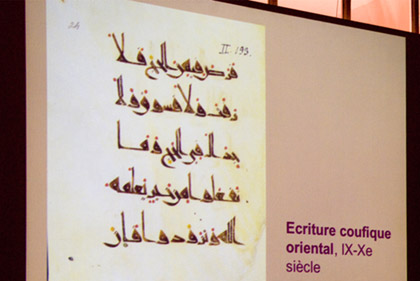 II. 193.
فرض فيهن الحج فلا
رفث ولا فسوق ولا
جدال في الحج وما
تفعلوا من خير يعلمه
الله وتزودوا فإن
Ecriture coufique
oriental, IX-Xe
siècle